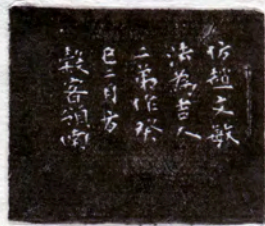 仿趙文敏
法為吉人
二弟作癸
巳二月方
穀客